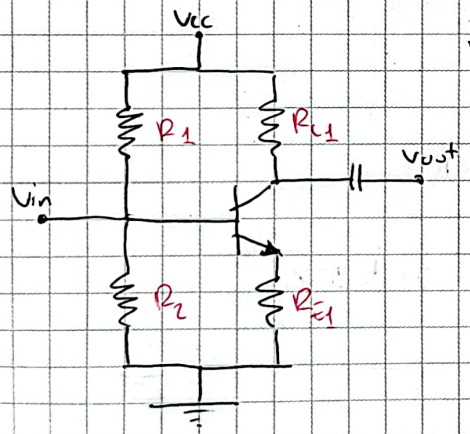 Vcc
R1
RC1
Vout
Vin
R2
RE1